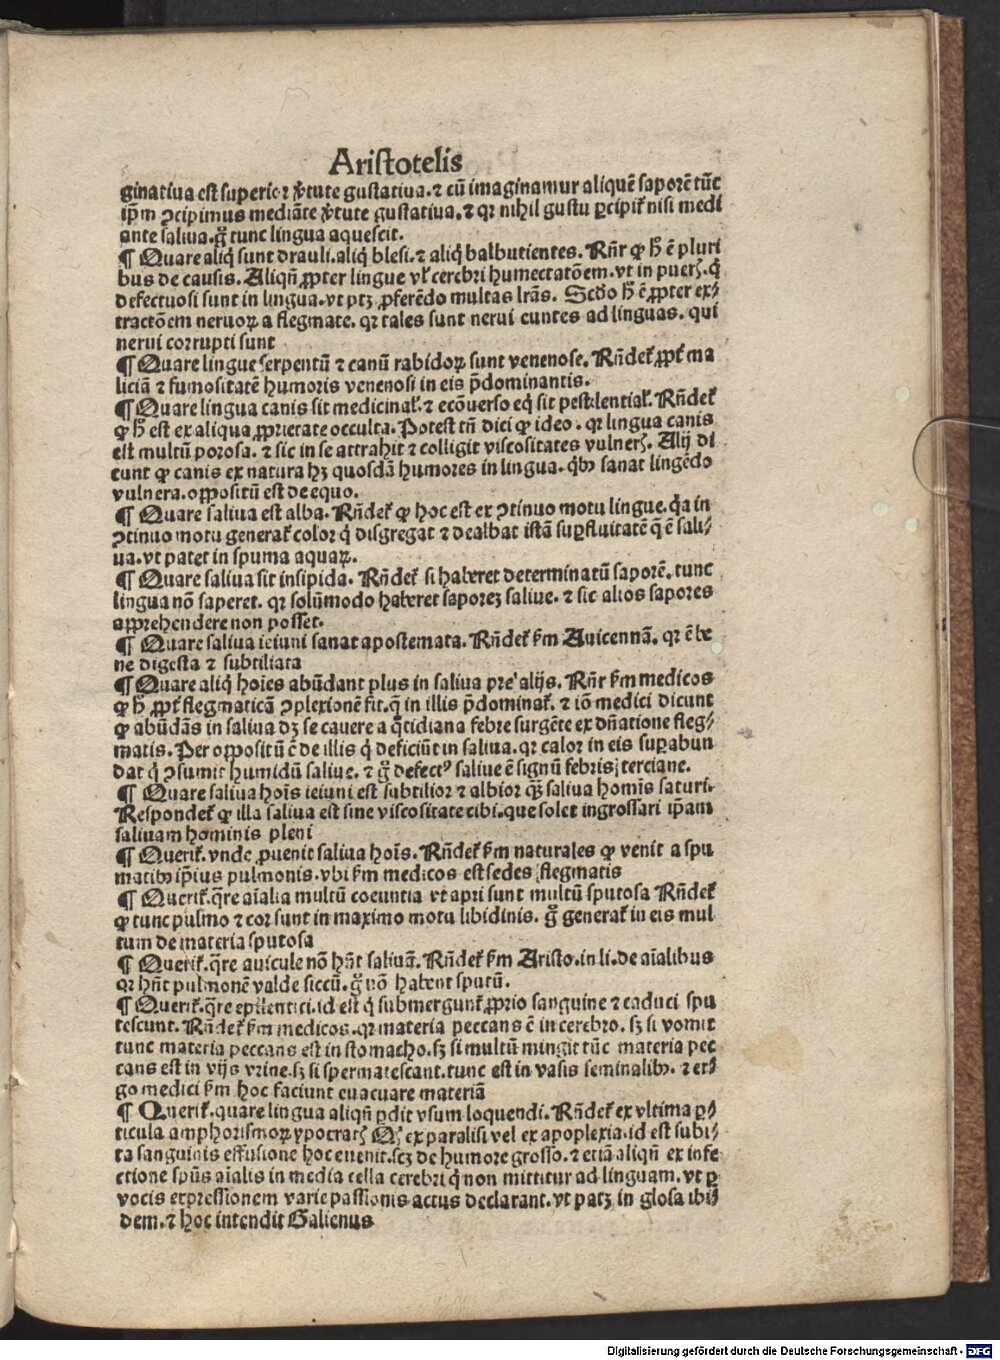 Aristotelis
ginatiua est superior v̓tute gustatiua. ⁊ cū imaginamur aliquē saporē tūc
ip̄m ꝯcipimus mediāte v̓tute gustatiua. ⁊ qꝛ nihil gustu ꝑcipit᷑ nisi medi
ante saliua. gͦ tunc lingua aquescit.
¶ Quare aliq̇ sunt drauli. aliq̇ blesi. ⁊ aliq̇ balbutientes. Rn̄r ꝙ h̄ ē pluri
bus de causis. Aliqn̄ ꝓpter lingue vl̓ cerebri humectatōem. vt in puerꝭ. q̇
defectuosi sunt in lingua. vt ptꝫ ꝓferēdo multas lr̄as. Scd̓o h̄ ē ꝓpter ex⸗
tractōem neruoꝝ a flegmate. qꝛ tales sunt nerui euntes ad linguas. qui
nerui corrupti sunt
¶ Quare lingue serpentū ⁊ canū rabidoꝝ sunt venenose. Rn̄det᷑ ꝓpt̓ ma
liciā ⁊ fumositatē humoris venenosi in eis p̄dominantis.
¶ Quare lingua canis sit medicinal̓. ⁊ ecōuerso eq̇ sit pestilential̓. Rn̄det᷑
ꝙ h̄ est ex aliqua ꝓprietate occulta. Potest tn̄ dici ꝙ ideo. qꝛ lingua canis
est multū porosa. ⁊ sic in se attrahit ⁊ colligit viscositates vulnerꝭ. Alij di
cunt ꝙ canis ex natura hꝫ quosdā humores in lingua. q̇bꝰ sanat lingēdo
vulnera. oppositū est de equo.
¶ Quare saliua est alba. Rn̄det᷑ ꝙ hoc est ex ꝯtinuo motu lingue. q̇a in
ꝯtinuo motu generat᷑ color q̇ disgregat ⁊ dealbat istā suꝑfluitatē q̄ ē sali⸗
ua. vt patet in spuma aquaꝝ.
¶ Quare saliua sit insipida. Rn̄det᷑ si haberet determinatū saporē. tunc
lingua nō saperet. qꝛ solūmodo haberet saporeꝫ saliue. ⁊ sic alios sapores
apprehendere non posset.
¶ Quare saliua ieiuni sanat apostemata. Rn̄det᷑ ẜm Auicennā. qꝛ ē be
ne digesta ⁊ subtiliata
¶ Quare aliq̇ hoīes abūdant plus in saliua pre alijs. Rn̄r ẜm medicos
ꝙ h̄ ꝓpt̓ flegmaticā ꝯplexionē fit. q̄ in illis p̄dominat᷑. ⁊ iō medici dicunt
ꝙ abūdās in saliua dꝫ se cauere a q̇tidiana febre surgēte ex dn̄atione fleg⸗
matis. Per oppositū ē de illis q̇ deficiūt in saliua. qꝛ calor in eis suꝑabun
dat q̇ ꝯsumit humidū saliue. ⁊ gͦ defectꝰ saliue ē signū febris terciane.
¶ Quare saliua hoīs ieiuni est subtilior ⁊ albior qꝫ̄ saliua homīs saturi.
Respondet᷑ ꝙ illa saliua est sine viscositate cibi. que solet ingrossari ip̄am
saliuam hominis pleni
¶ Querit᷑. vnde ꝓuenit saliua hoīs. Rn̄det᷑ ẜm naturales ꝙ venit a spu
matibꝰ ip̄ius pulmonis. vbi ẜm medicos est sedes flegmatis
¶ Querit᷑. q̄re aīalia multū coeuntia vt apri sunt multū sputosa Rn̄det᷑
ꝙ tunc pulmo ⁊ cor sunt in maximo motu libidinis. gͦ generat᷑ in eis mul
tum de materia sputosa
¶ Querit᷑. q̄re auicule nō hn̄t saliuā. Rn̄det᷑ ẜm Aristo. in li. de aīalibus
qꝛ hn̄t pulmonē valde siccū. gͦ nō habent sputū.
¶ Querit᷑. q̄re epilentici. id est q̇ submergunt᷑ ꝓprio sanguine ⁊ caduci spu
tescunt. Rn̄det᷑ ẜm medicos. qꝛ materia peccans ē in cerebro. sꝫ si vomit
tunc materia peccans est in stomacho. sꝫ si multū mingit tūc materia pec
cans est in vijs vrine. sꝫ si spermatescant. tunc est in vasis seminalibꝰ. ⁊ er⸗
go medici ẜm hoc faciunt euacuare materiā
¶ Querit᷑. quare lingua aliqn̄ ꝑdit vsum loquendi. Rn̄det᷑ ex vltima ꝑ⸗
ticula amphorismoꝝ ypocratꝭ Qꝫ ex paralisi vel ex apoplexia. id est subi⸗
ta sanguinis effusione hoc euenit. scꝫ de humore grosso. ⁊ etiā aliqn̄ ex infe
ctione spūs aīalis in media cella cerebri q̇ non mittitur ad linguam. vt ꝑ
vocis expressionem varie passionis actus declarant. vt patꝫ in glosa ibi⸗
dem. ⁊ hoc intendit Galienus
Digitalisierung gefördert durch die Deutsche Forschungsgemeinschaft - DFG